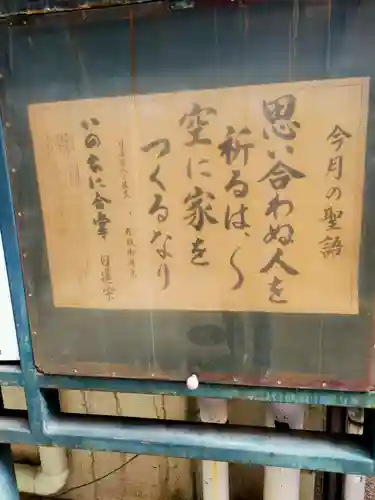 今月の聖語
思い合わぬ人を
祈るは、
空に家を
つくるなり
いのちに合掌